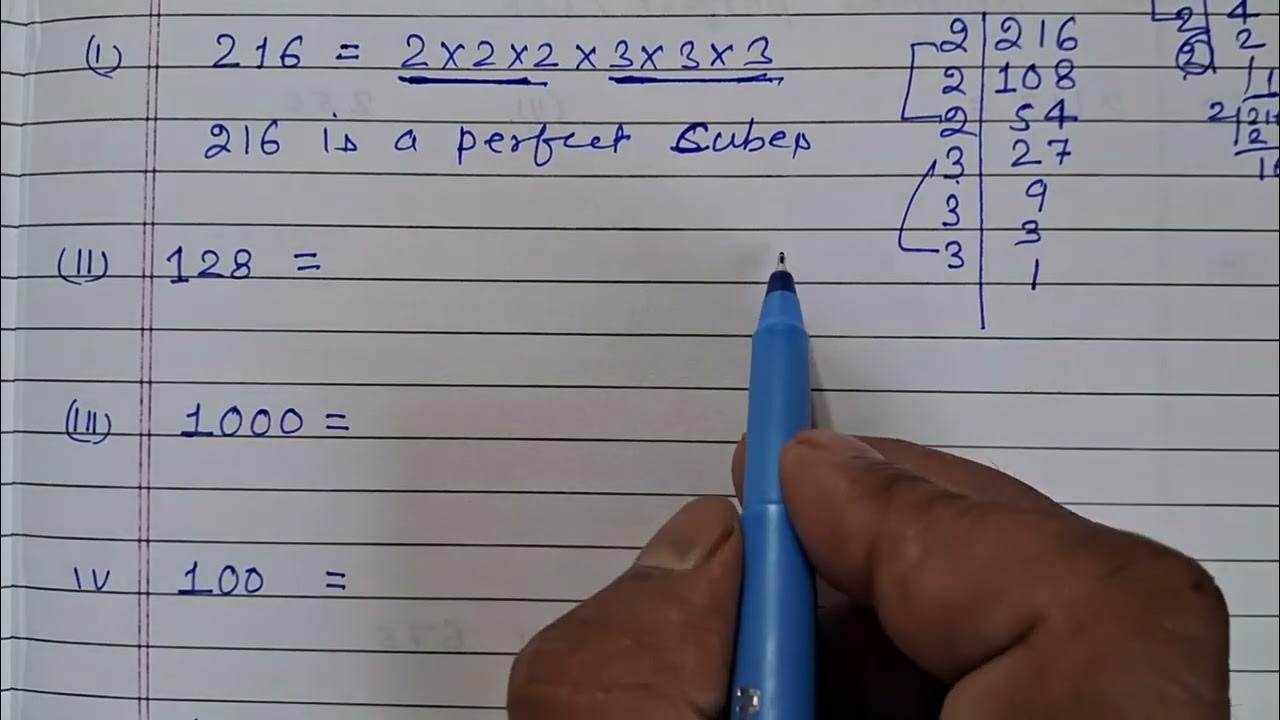 (I) 216 = 2×2×2×3×3×3
216 is a perfect Cubes
(II) 128 =
(III) 1000 =
IV 100 =
2 216
2 108
2 54
3 27
3 9
3 3
1
2 4
2 2